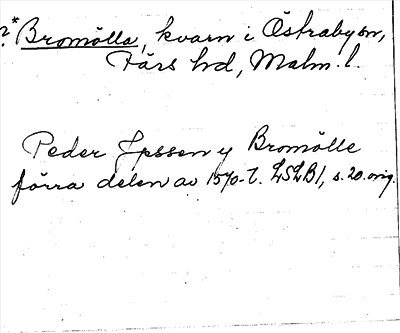 ?* Bromölla, kvarn i Östrabysn,
Färs hd, Malm. l.
Peder Jpssen y Bromölle
förra delen av 1570-t. LSLB 1, s. 20. orig.